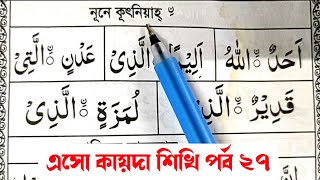 নূনে কূৎনিয়াহ্
اَحَدُ ۨ اللّٰهُ اَلِيْمًا ۨ الَّذِىْ عَدْنِ ۨ الَّتِىْ
قَدِيْرُ ۨ الَّذِىْ لُمَزَةِ ۨ الَّذِىْ
এসো কায়দা শিখি পর্ব ২৭